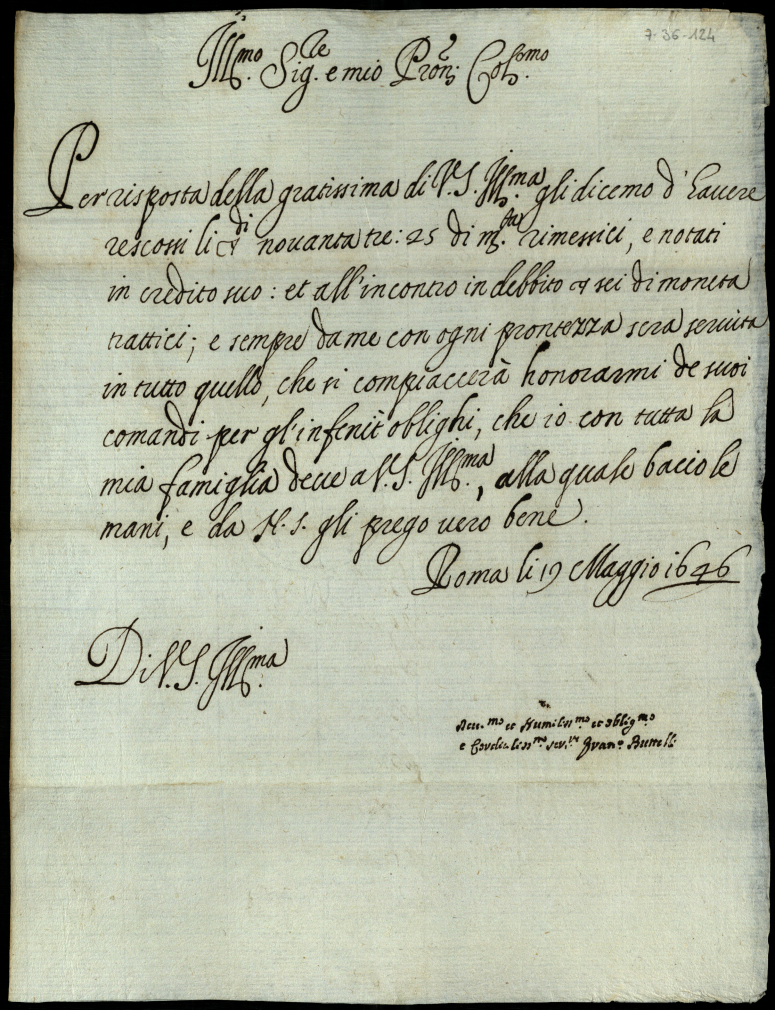 7-36-124
Ill.mo Sig.re e mio Pron. Col.mo
Per risposta della gratissima di V.S. Ill.ma gli dicemo d'havere
rescossi li di novanta tre: 25 di m.ta rimessici, e notati
in credito suo: et all'incontro in debbito sei di moneta
trattici; e sempre da me con ogni prontezza sera servita
in tutto quello, che si compiaccerà honorarmi de suoi
comandi per gl'infenit oblighi, che io con tutta la
mia famiglia deve a V.S. Ill.ma, alla quale bacio le
mani, e da N.S. gli prego vero bene.
Roma li 19 Maggio 1646
Di V.S. Ill.ma
Dev.mo et Humiliss.mo et oblig.mo
e Cordialiss.mo ser.re Buttelli